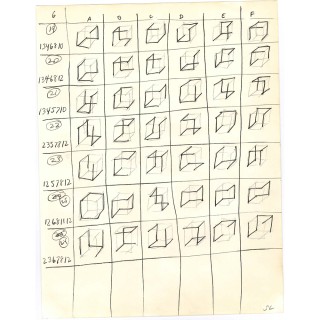 6 A B C D E F
19
1346810
20
1346812
21
1345710
22
2357812
23
1257812
12681112
2367812
SL